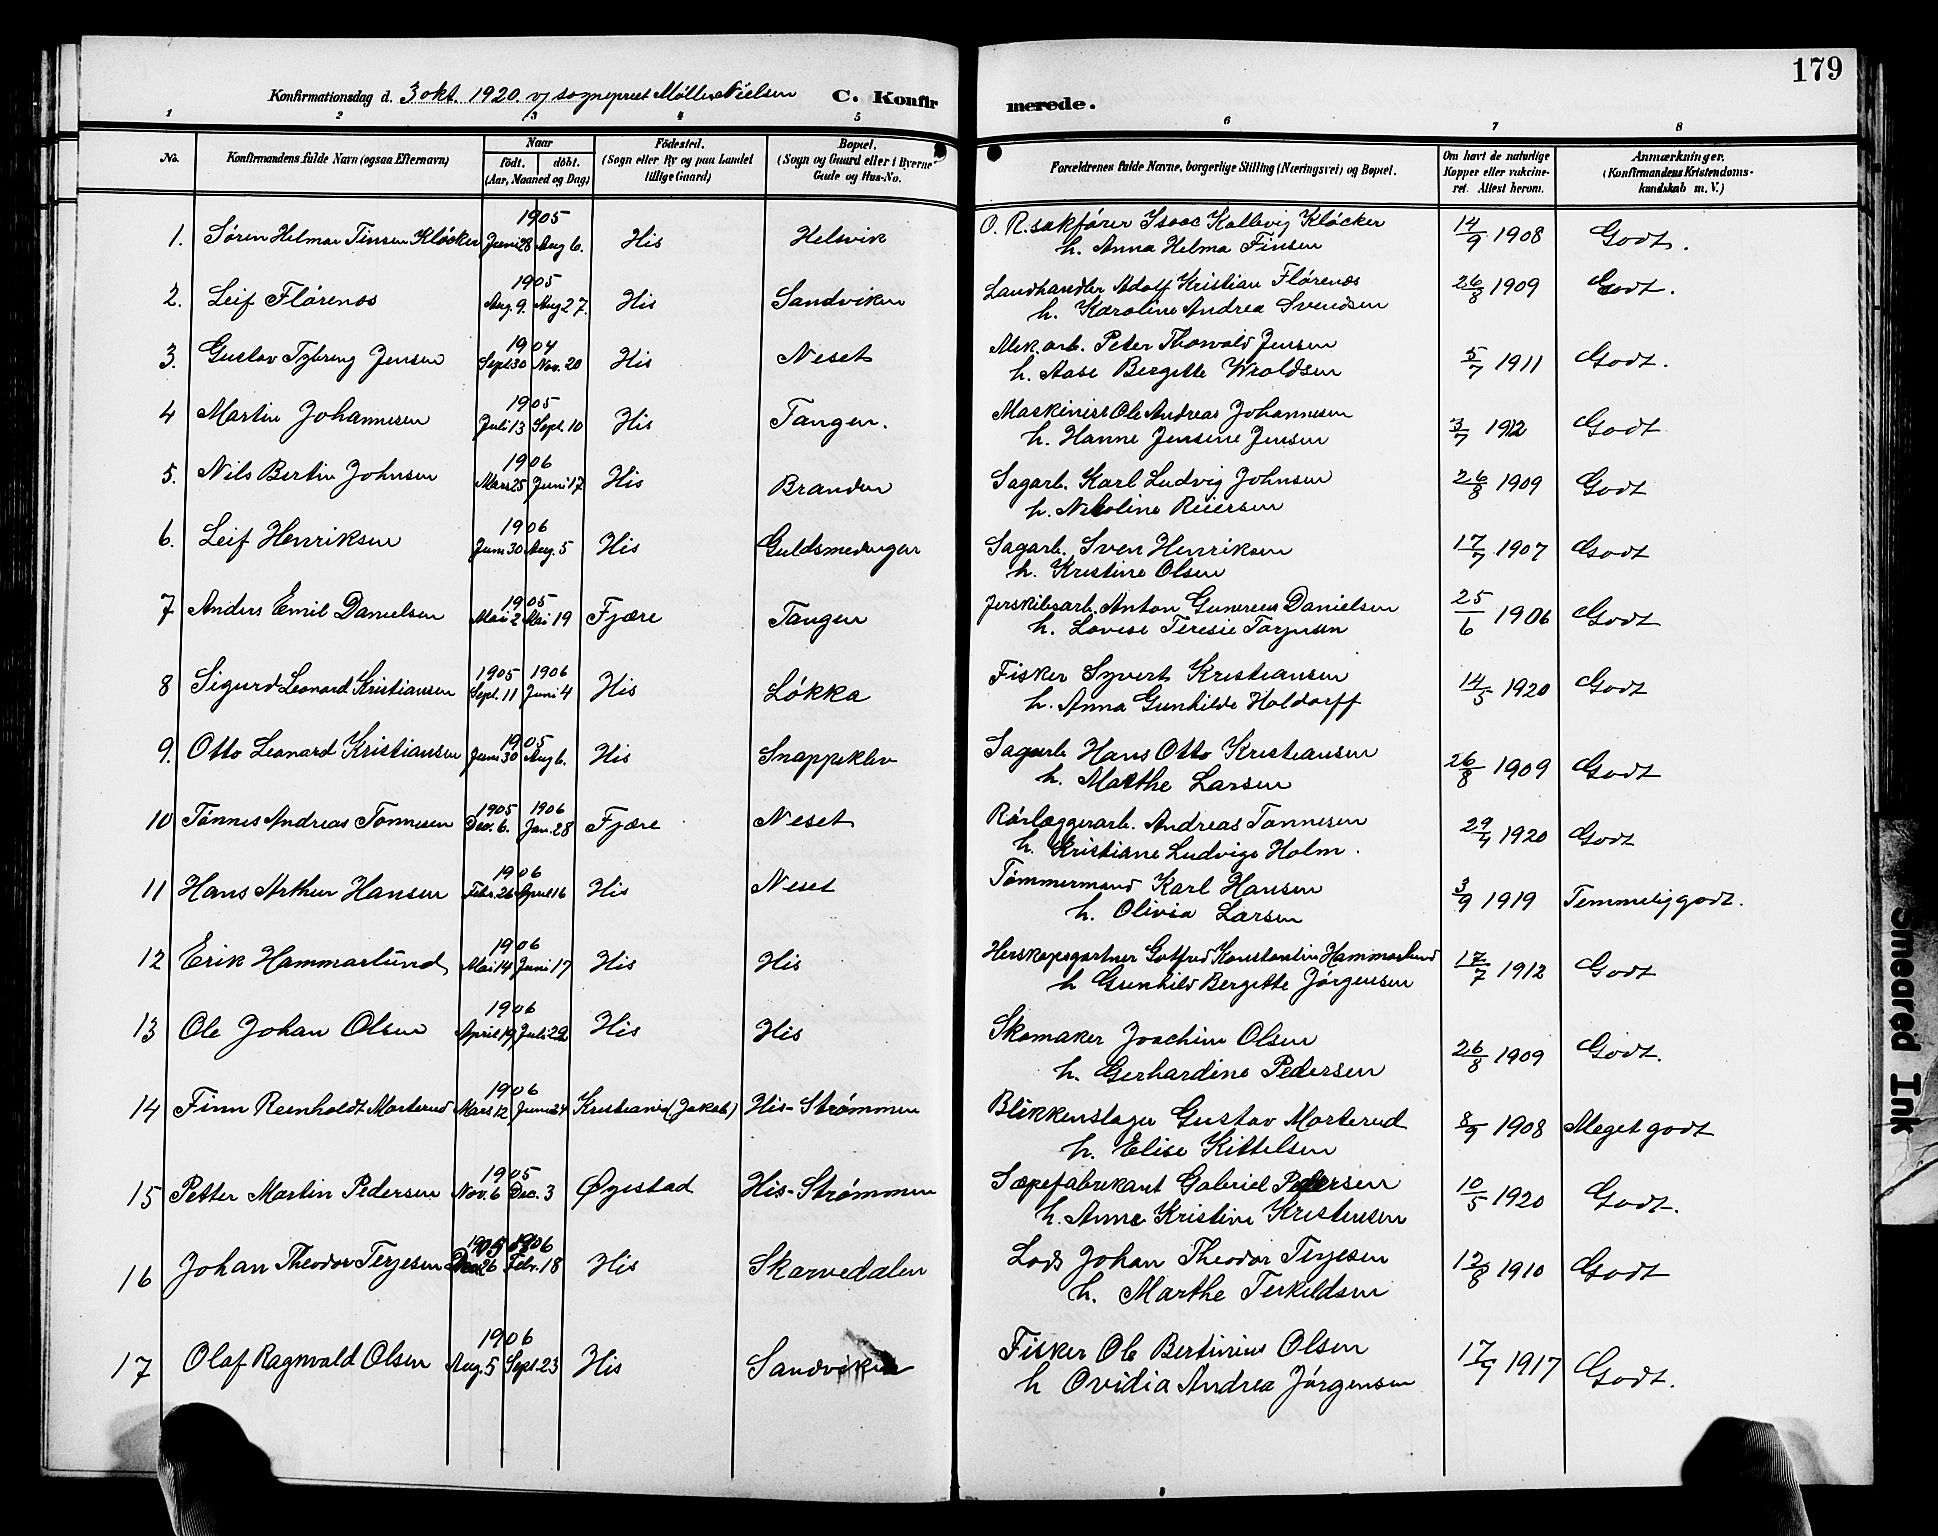 179
Konfirmationsdag d. 3 okt. 1920. v/ sogneprest Møller Nielsen C. Konfirmerede.
1 2 3 4 5 6 7 8
No. Konfirmandens fulde Navn (ogsaa Efternavn) Naar født. døbt. (Aar, Maaned og Dag) Fødested. (Sogn eller By og paa Landet tillige Gaard) Bopæl. (Sogn og Gaard eller i Byerne Gade og Hus-No. Forældrenes fulde Navne, borgerlige Stilling (Næringsvei) og Bopæl. Om havt de naturlige Kopper eller vakcineret. Attest herom. Anmærkninger. (Konfirmandens Kristendomskundskab m. V.)
1905
1. Søren Helmar Finsen Kløcker Juni 28 Aug 6. His Helsvik O. R. sakfører Isaac Kallevig Kløcker 14/9 1908 Godt.
h. Anna Helma Finsen
1905
2. Leif Flørenos Aug. 9. Aug 27. His Sandviken Landhandler Adolf Kristian Flørenos 26/8 1909 Godt.
h. Karoline Andrea Svendsen
1904
3. Gustav Tybring Jensen Sept 30 Nov. 20 His Neset Mek. arb. Peter Thorvald Jensen 5/7 1911 Godt.
h. Aase Bergette Wroldsen
1905
4 Martin Johannesen Juli 13 Sept. 10 His Tangen. Maskinist Ole Andreas Johannesen 3/7 1912 Godt
h. Hanne Jensine Jensen
1906
5. Nils Bertin Johnsen Mars 25 Juni 17 His Branden Sagarb. Karl Ludvig Johnsen 26/8 1909 Godt
h. Nikoline Reiersen
1906
6. Leif Henriksen Juni 30 Aug. 5 His Guldsmedengen Sagarb. Sven Henriksen 17/7 1907 Godt
h. Kristine Olsen
1905
7 Anders Emil Danielsen Mars 2 Mai 19 Fjære Tangen Anton Gunereus Danielsen 25/6 1906 Godt
h. Lovise Teresie Torjusen
1905 1906
8 Sigurd Leonard Kristiansen Sept. 11 Juni 4 His Løkka Fisker Syvert Kristiansen 14/5 1920 Godt
h. Anna Gunhilde Holdorff
1905
9. Otto Leonard Kristiansen Juni 30 Aug 6. His Snappeklev Sagarb Hans Otto Kristiansen 26/8 1909 Godt
h. Marthe Larsen
1905 1906
10 Tønnes Andreas Tønnesen Dec. 6. Jan. 28 Fjære Neset Rørlæggerarb. Andreas Tønnesen 29/4 1920 Godt
h. Kristiane Ludvige Holm.
1906
11 Hans Arthur Hansen Febr. 26 April 16 His Neset Tømmermand Karl Hansen 3/9 1919 Temmelig godt.
h. Olivia Larsen
1906
12 Erik Hammarlund Mai 14 Juni 17 His His Herskapsgartner Gotfred Konstantin Hammarlund 17/7 1912 Godt
h Gunhild Bergette Jørgensen
1906
13 Ole Johan Olsen April 19 Juli 22 His His Skomaker Joachim Olsen 26/8 1909 Godt.
h. Gerhardine Pedersen
1906
14 Finn Reinholdt Morterud Mars 12 Juni 24 Kristiania (Jakob) His-Strømmen Blikkenslager Gustav Morterud 8/9 1908 Meget godt
h. Elise Kittelsen
1905
15 Petter Martin Pedersen Nov. 6 Dec. 3 Øyestad His-Strømmen Sæpefabrikant Gabriel Pedersen 10/5 1920 Godt.
h. Anne Kristine Kristensen
1905 1906
16 Johan Theodor Terjesen Dec 26 Febr. 18 His Skarvedalen Lods Johan Theodor Terjesen 12/8 1910 Godt
h. Marthe Terkildsen
1906
17 Olaf Ragnvald Olsen Aug. 5 Sept. 23 His Sandviken Fisker Ole Bertinius Olsen 17/9 1917 Godt.
h Ovidia Andrea Jørgensen
Smeared Ink